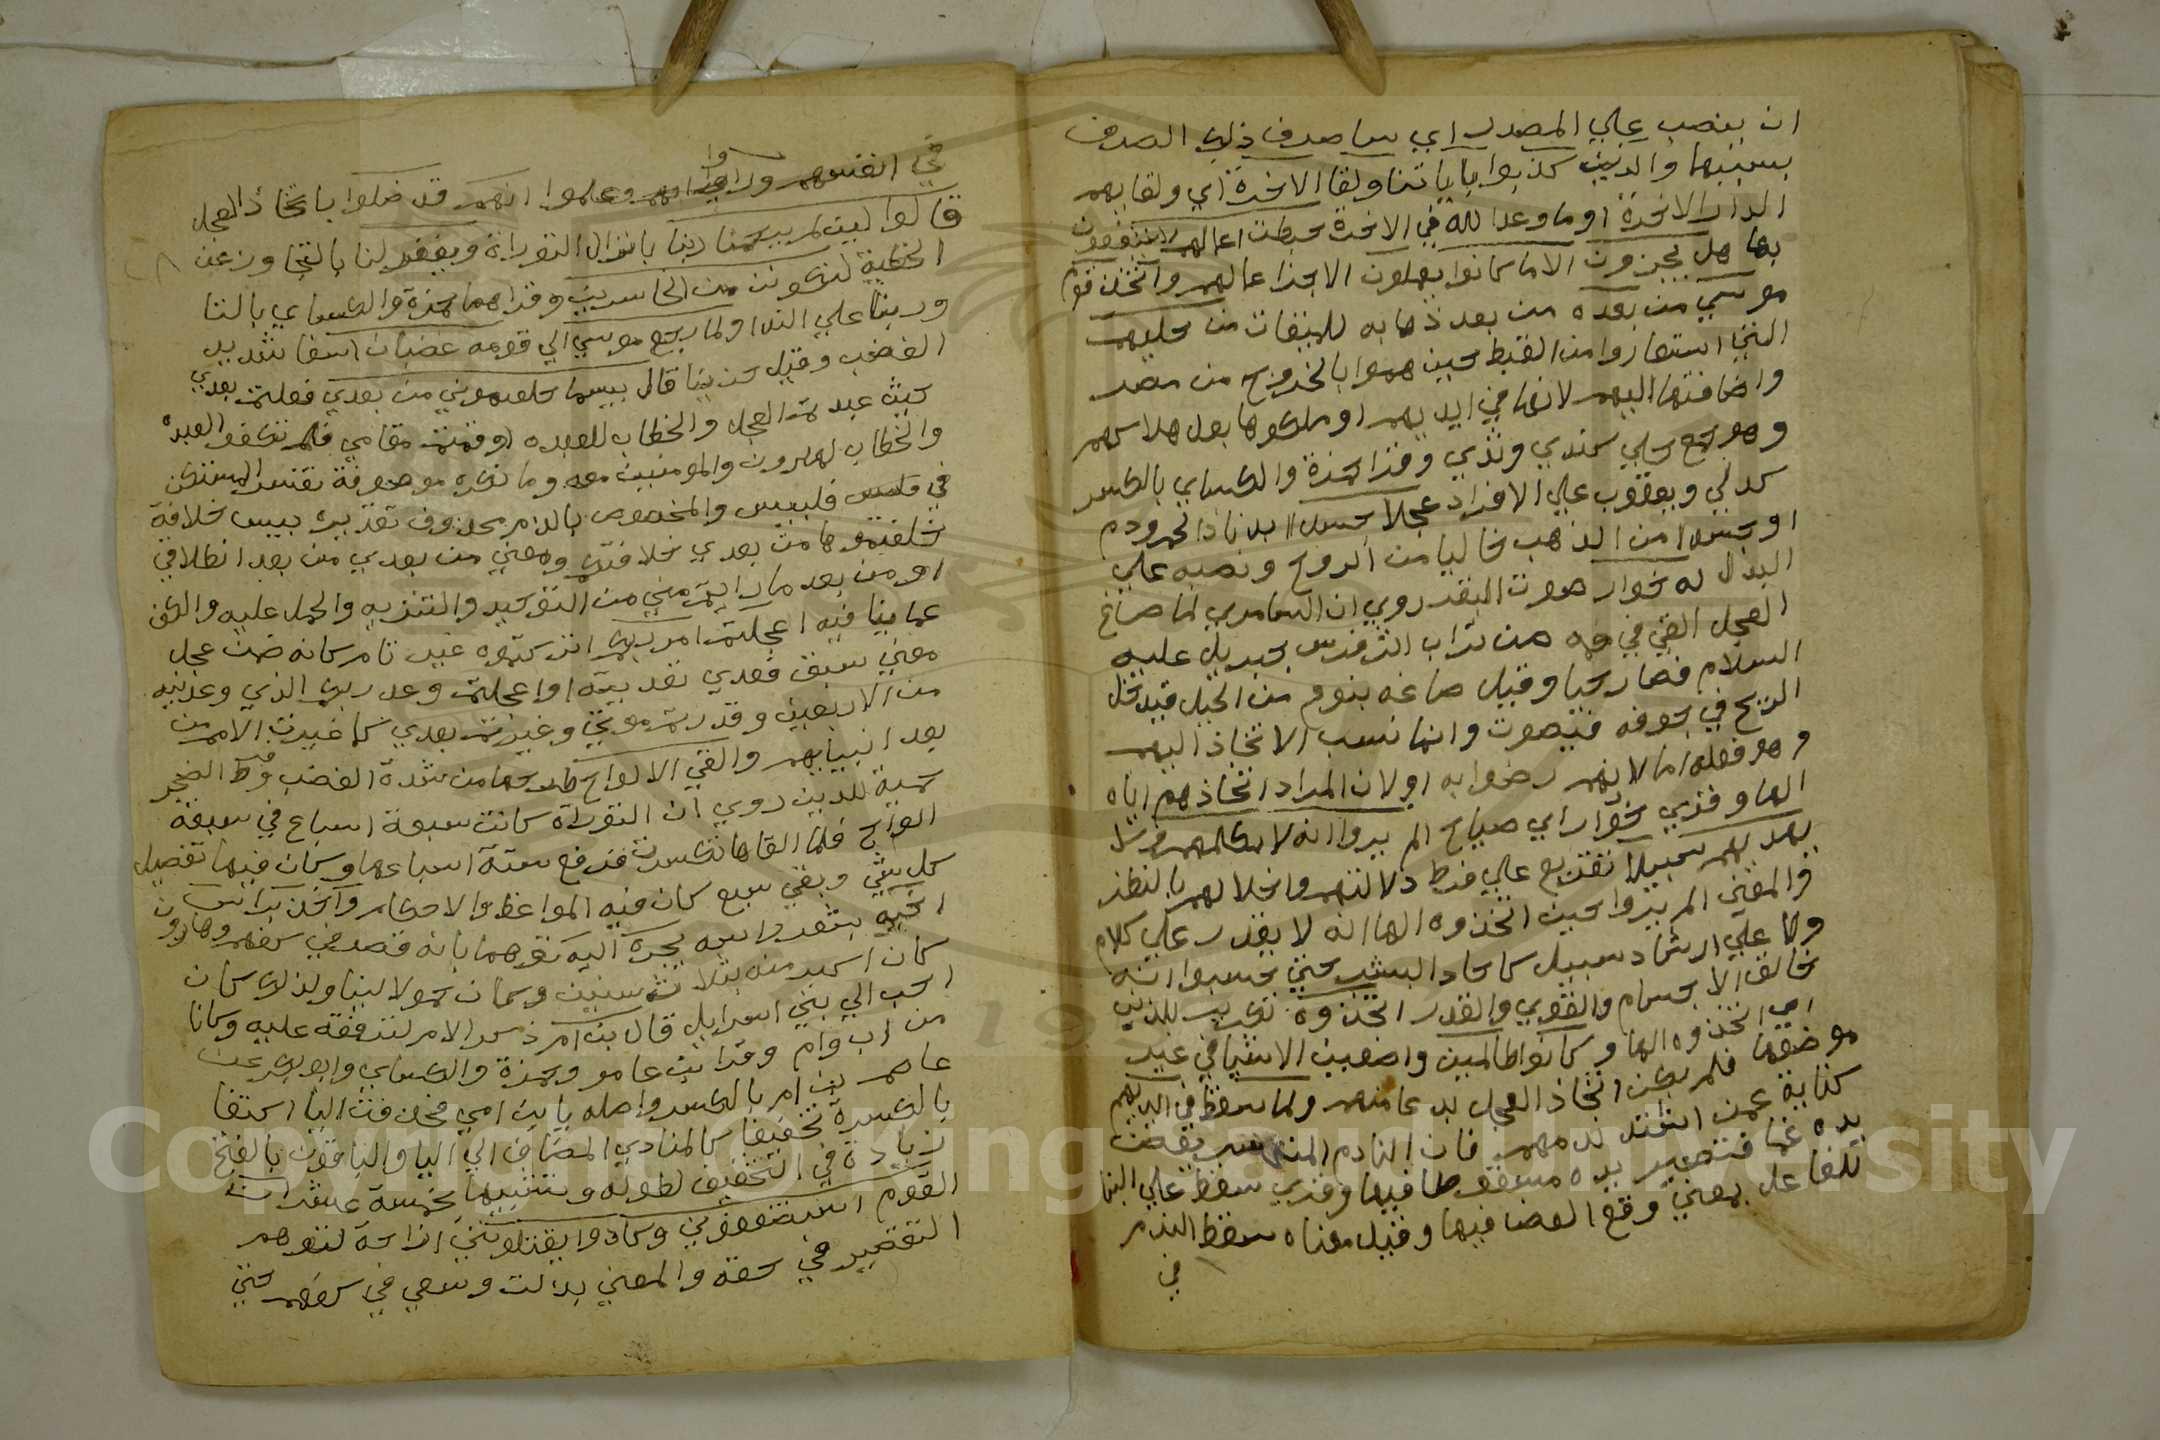 ان ينصب علي المصدر اي ساصرف ذلك الصرف
بسببهما والذين كذبوا باياتنا ولقا الاخرة اي ولقايهم
الدار الاخرة او ما وعد الله في الاخرة حبطت اعمالهم لا ينتفعون
بها هل يجزون الا ما كانوا يعملون الا جزا اعمالهم واتخذ قوم
موسي من بعده من بعد ذهابه للميقات من حليهم
التي استعاروا من القبط حين هموا بالخروج من مصر
واضافتها اليهم لانها في ايديهم او ملكوها بعد هلاكهم
وهو جمع حلي كثدي وثدي وقرا حمزة والكساي بالكسر
كدلي ويعقوب علي الافراد عجلا جسدا بدنا ذا لحم ودم
او جسدا من الذهب خاليا من الروح ونصبه علي
البدل له خوار صوت البقر روي ان السامري لما صاغ
العجل القي في فمه من تراب اثر فرس جبريل عليه
السلام فصار حيا وقيل صاغه بنوع من الحيل فيدخل
الريح في جوفه فيصوت وانما نسب الاتخاذ اليهم
وهو فعله اما لانهم رضوا به او لان المراد اتخاذهم اياه
الها وقري جوار اي صياح الم يروا انه لا يكلمهم ولا
يهديهم سبيلا تقريع علي فرط ضلالتهم واخلالهم بالنظر
والمعني الم يروا حين اتخذوه الها انه لا يقدر علي كلام
ولا علي ارشاد سبيل كاحاد البشر حتي حسبوا انه
خالق الاجسام والقوي والقدر اتخذوه تكرير للذين
اي اتخذوه الها وكانوا ظالمين واضعين الاشيا في غير
موضعها فلم يكن اتخاذ العجل بدعا منهم ولما سقط في ايديهم
كناية عمن اشتد ندمهم فان النادم المتحسر يعض
يده غما فتصير يده مسقوطا فيها وقري سقط علي البنا
للفاعل بمعني وقع العض فيها وقيل معناه سقط الندم
في
في انفسهم وراوا وعلموا انهم قد ضلوا باتخاذ العجل
قالوا لين لم يرحمنا ربنا بانزال التوراة ويغفر لنا بالتجاوز عن
الخطية لنكونن من الخاسرين وقراهما حمزة والكساي بالتا
وربنا علي الندا ولما رجع موسي الي قومه غضبان اسفا شديد
الغضب وقيل حزينا قال بيسما خلفتموني من بعدي فعلتم بعدي
حيث عبدتم العجل والخطاب للعبدة او قمتم مقامي فلم تكفوا العبدة
والخطاب لهارون والمومنين معه وما نكرة موصوفة تفسر المستكن
في بيس والمخصوص بالذم محذوف تقديره بيس خلافة
خلفتموها من بعدي خلافتكم ومعني من بعدي من بعد انطلاقي
او من بعد ما رايتم مني من التوحيد والتنزيه والحمل عليه والكف
عما ينافيه اعجلتم امر ربكم اتركتموه غير تام كانه ضمن عجل
معني سبق فعدي تعديته او اعجلتم وعد ربكم الذي وعدنيه
من الاربعين وقدرتم موتي وغيرتم بعدي كما غيرت الامم
بعد انبيايهم والقي الالواح طرحها من شدة الغضب وفرط الضجر
حمية للدين روي ان التوراة كانت سبعة اسباع في سبعة
الواح فلما القاها انكسرت فرفع ستة اسباعها وكان فيها تفصيل
كل شي وبقي سبع كان فيه المواعظ والاحكام واخذ براس
اخيه بشعر راسه يجره اليه توهما بانه قصر في كفهم وهارون
كان اكبر منه بثلاث سنين وكان حمولا لينا ولذلك كان
احب الي بني اسرايل قال ابن ام ذكر الام لترققه عليه وكانا
من اب وام وقرا ابن عامر وحمزة والكساي وابو بكر عن
عاصم بن ام بالكسر واصله يا ابن امي فحذفت اليا اكتفا
بالكسرة تخفيفا كالمنادي المضاف الي اليا والباقون بالفتح
زيادة في التخفيف لطوله وتشبيها بخمسة عشر ان
القوم استضعفوني وكادوا يقتلونني ازاحة لتوهم
التقصير في حقه والمعني بذلت وسعي في كفهم حتي